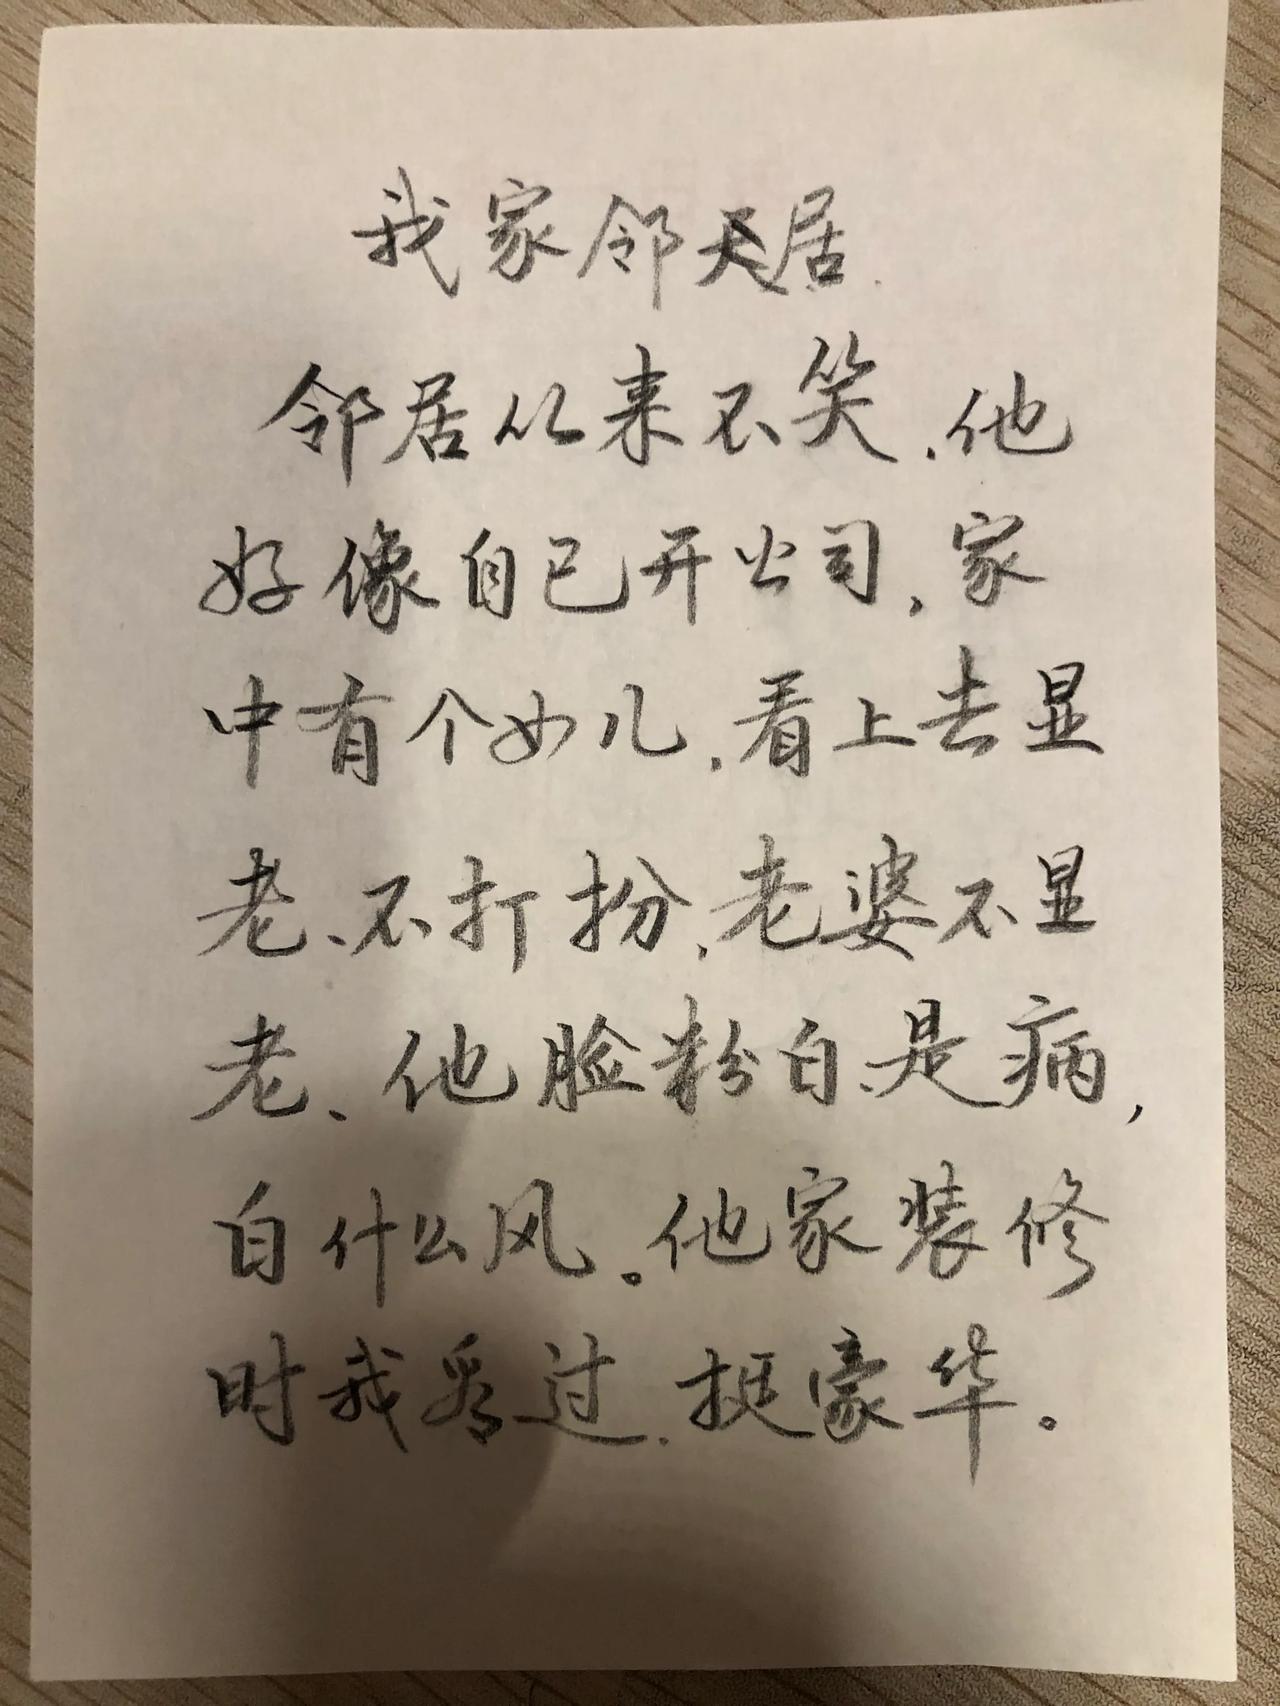 我家邻居
邻居从来不笑，他
好像自己开公司，家
中有个女儿，看上去显
老、不打扮，老婆不显
老、他脸粉白、是病，
白什么风。他家装修
时我看过，挺豪华。